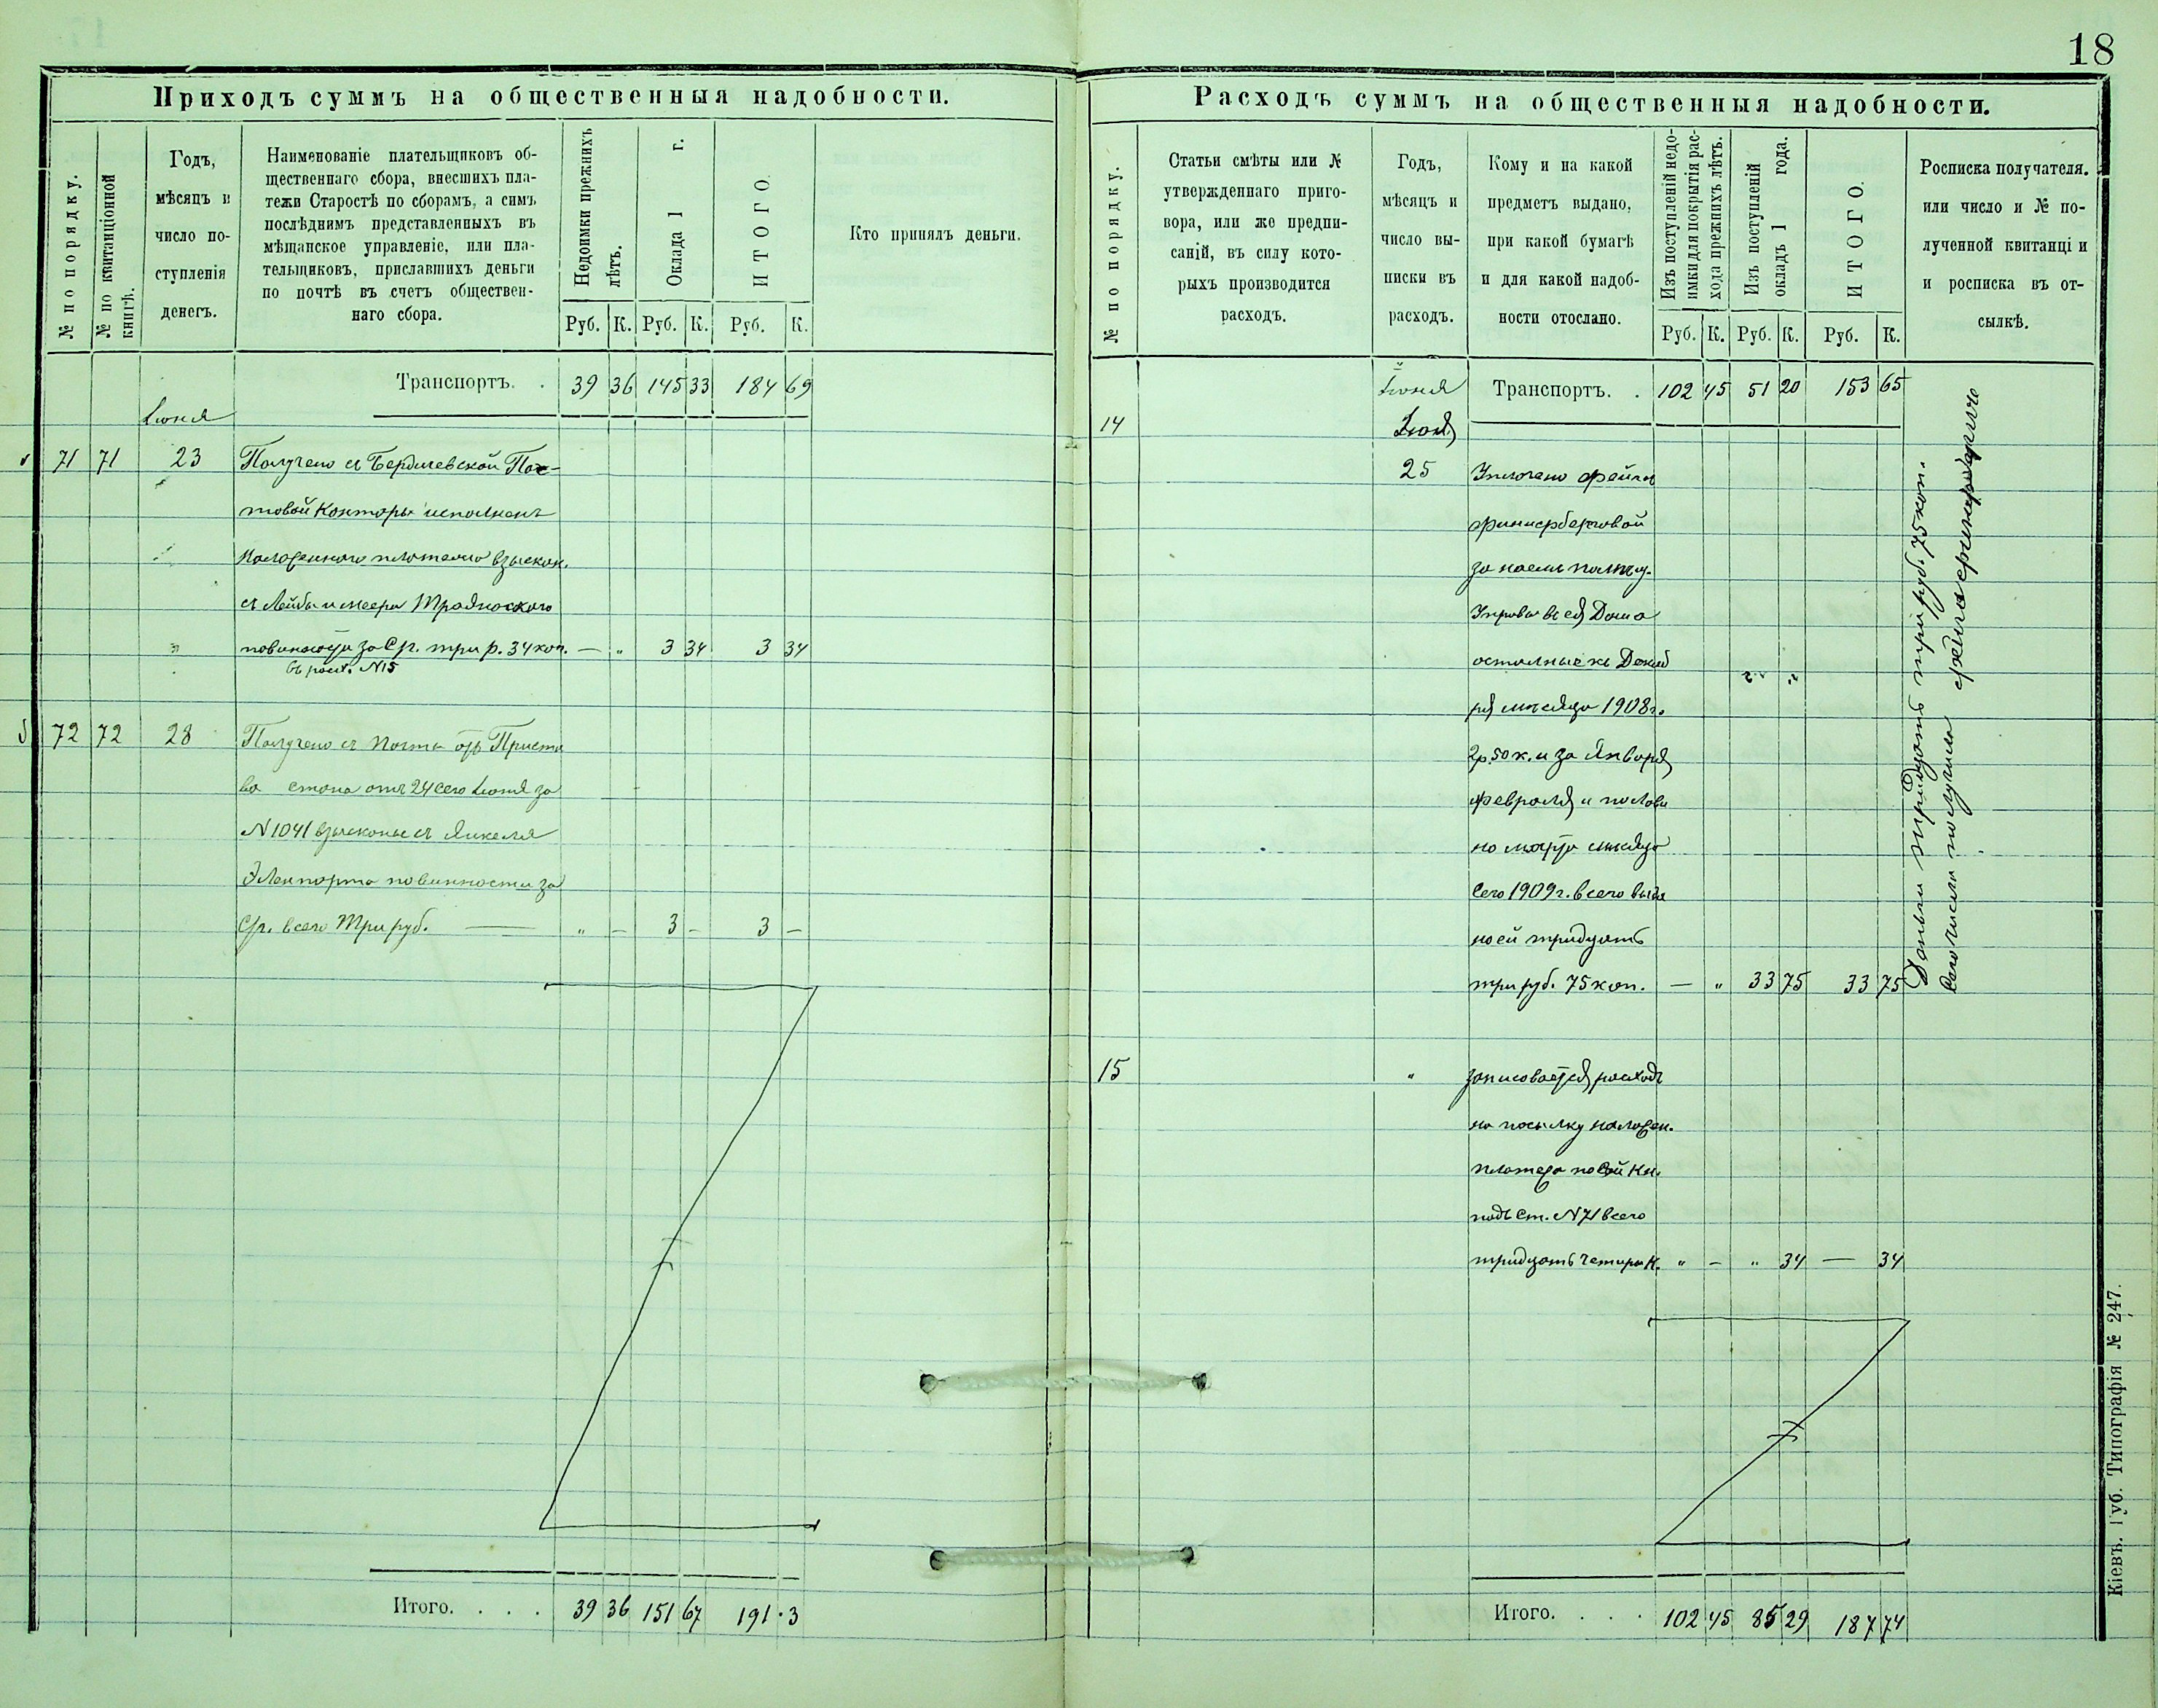 18
Приходъ суммъ на общественныя надобности.
№ по порядку.
№ по квитанціонной книгѣ.
Годъ,
мѣсяцъ и
число по-
ступленія
денегъ.
Наименованіе плательщиковъ об-
щественнаго сбора, внесшихъ пла-
тежи Старостѣ по сборамъ, а симъ
послѣднимъ представленныхъ въ
мѣщанское управленіе, или пла-
тельщиковъ, приславшихъ деньги
по почтѣ въ счетъ обществен-
наго сбора.
Недоимки прежнихъ лѣтъ.
Оклада 1 г.
ИТОГО.
Кто принялъ деньги.
Руб. К. Руб. К. Руб. К.
Транспортъ. . 39 36 145 33 184 69
Іюня
71 71 23 Получено съ Бердичевской Поч-
товой Конторы исполнен
Наложеннаго платежа взыскан.
съ Лейбы и Меера
повинности за Сг. три р. 34 коп. — „ 3 34 3 34
въ расх. N15
72 72 28 Получено съ почты отъ Приста
ва стана отъ 24 сего Іюня за
N1041 взысканые съ Янкеля
повинности за
Сг. всего Три руб. — „ - 3 - 3 -
Итого. . . . 39 36 151 67 191 · 3
Расходъ суммъ на общественныя надобности.
№ по порядку.
Статьи смѣты или №
утвержденнаго приго-
вора, или же предпи-
саній, въ силу кото-
рыхъ производится
расходъ.
Годъ,
мѣсяцъ и
число вы-
писки въ
расходъ.
Кому и на какой
предметъ выдано,
при какой бумагѣ
и для какой надоб-
ности отослано.
Изъ поступленій недо-
имки для покрытія рас-
хода прежнихъ лѣтъ.
Изъ поступленій
окладъ 1 года.
ИТОГО.
Росписка получателя.
или число и № по-
лученной квитанці и
и росписка въ от-
сылкѣ.
Руб. К. Руб. К. Руб. К.
Іюня Транспортъ. . 102 45 51 20 153 65
14 Іюня
25 Уплочено Фейги
за наемъ
Управы въ ея Дома
осталные къ Декаб
ря мѣсяца 1908г.
2р. 50 к. и за Января
Февраля и полови
на марта мѣсяца
Сего 1909г. всего выда
но ей тридцать
три руб. 75 коп. — „ 33 75 33 75
Деньги тридцать три руб. 75 коп.
сего числа получила
15 „ записовается расходъ
на посылку наложен.
платежа по сей Кн.
подъ Ст. N71 всего
тридцать четыри К. „ - „ 34 — 34
Итого. . . . 102 45 85 29 187 74
Кіевъ. Губ. Типографія № 247.